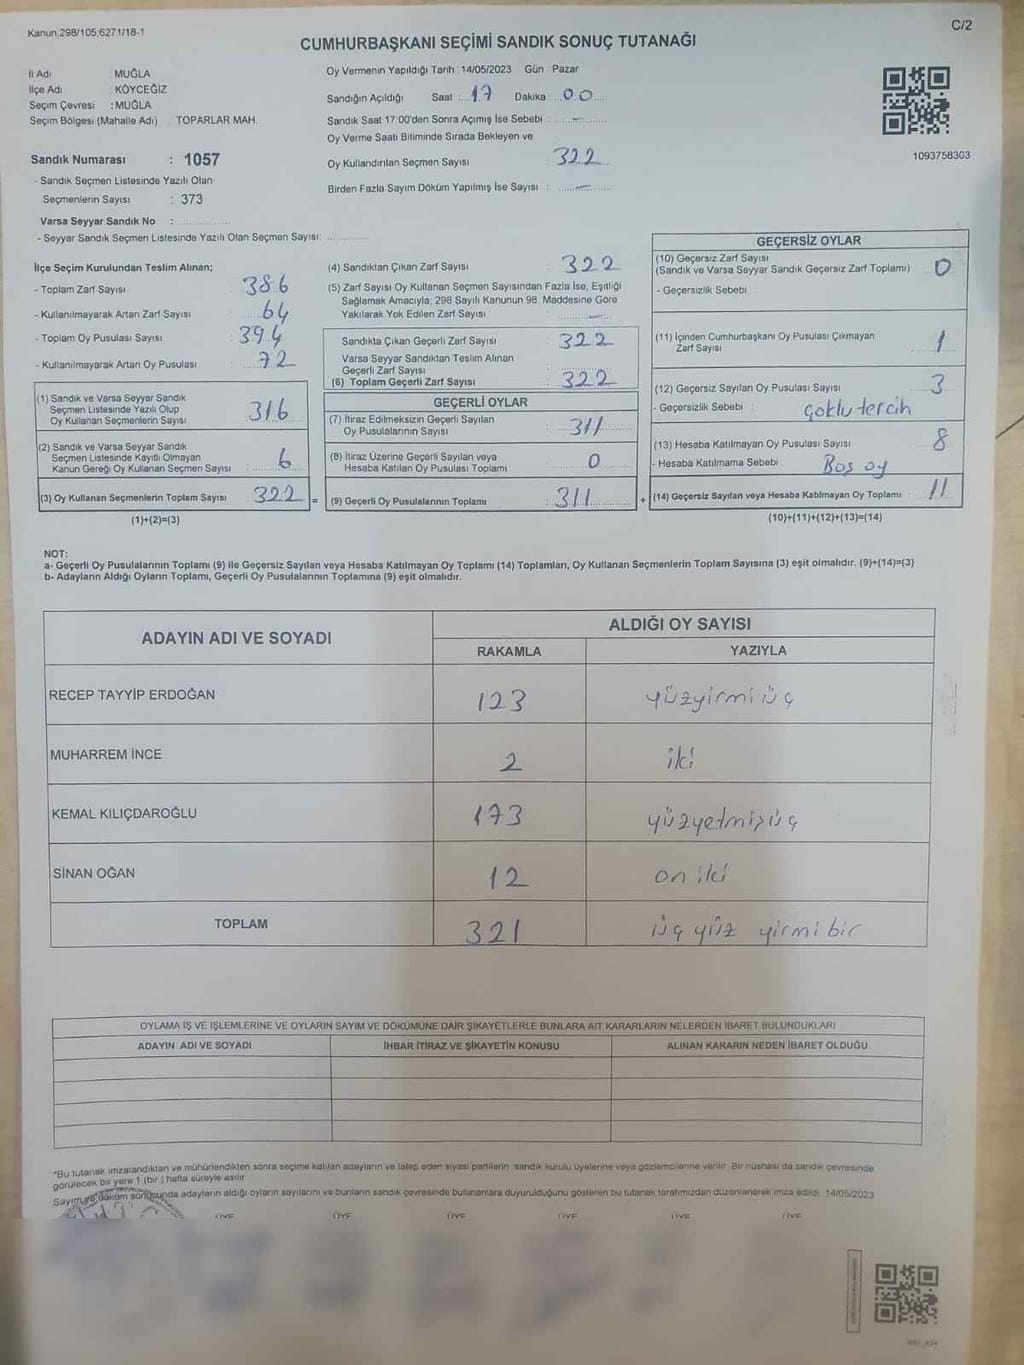 Kanun,298/105,6271/18-1
C/2
CUMHURBAŞKANI SEÇİMİ SANDIK SONUÇ TUTANAĞI
İl Adı : MUĞLA
İlçe Adı : KÖYCEĞİZ
Seçim Çevresi : MUĞLA
Seçim Bölgesi (Mahalle Adı) : TOPARLAR MAH.
Sandık Numarası : 1057
- Sandık Seçmen Listesinde Yazılı Olan
Seçmenlerin Sayısı : 373
Varsa Seyyar Sandık No :
- Seyyar Sandık Seçmen Listesinde Yazılı Olan Seçmen Sayısı:
Oy Vermenin Yapıldığı Tarih : 14/05/2023 Gün : Pazar
Sandığın Açıldığı Saat : 17 Dakika : 00
Sandık Saat 17:00'den Sonra Açımış İse Sebebi : —
Oy Verme Saati Bitiminde Sırada Bekleyen ve
Oy Kullandırılan Seçmen Sayısı : 322
Birden Fazla Sayım Döküm Yapılmış İse Sayısı : —
1093758303
İlçe Seçim Kurulundan Teslim Alınan;
- Toplam Zarf Sayısı : 386
- Kullanılmayarak Artan Zarf Sayısı : 64
- Toplam Oy Pusulası Sayısı : 394
- Kullanılmayarak Artan Oy Pusulası : 72
(1) Sandık ve Varsa Seyyar Sandık
Seçmen Listesinde Yazılı Olup
Oy Kullanan Seçmenlerin Sayısı : 316
(2) Sandık ve Varsa Seyyar Sandık
Seçmen Listesinde Kayıtlı Olmayan
Kanun Gereği Oy Kullanan Seçmen Sayısı : 6
(3) Oy Kullanan Seçmenlerin Toplam Sayısı : 322 =
(1)+(2)=(3)
(4) Sandıktan Çıkan Zarf Sayısı : 322
(5) Zarf Sayısı Oy Kullanan Seçmen Sayısından Fazla İse, Eşitliği
Sağlamak Amacıyla; 298 Sayılı Kanunun 98. Maddesine Göre
Yakılarak Yok Edilen Zarf Sayısı : —
Sandıkta Çıkan Geçerli Zarf Sayısı : 322
Varsa Seyyar Sandıktan Teslim Alınan
Geçerli Zarf Sayısı :
(6) Toplam Geçerli Zarf Sayısı : 322
GEÇERLİ OYLAR
(7) İtiraz Edilmeksizin Geçerli Sayılan
Oy Pusulalarının Sayısı : 311
(8) İtiraz Üzerine Geçerli Sayılan veya
Hesaba Katılan Oy Pusulası Toplamı : 0
(9) Geçerli Oy Pusulalarının Toplamı : 311 +
GEÇERSİZ OYLAR
(10) Geçersiz Zarf Sayısı
(Sandık ve Varsa Seyyar Sandık Geçersiz Zarf Toplamı) : 0
- Geçersizlik Sebebi :
(11) İçinden Cumhurbaşkanı Oy Pusulası Çıkmayan
Zarf Sayısı : 1
(12) Geçersiz Sayılan Oy Pusulası Sayısı : 3
- Geçersizlik Sebebi : çoklu tercih
(13) Hesaba Katılmayan Oy Pusulası Sayısı : 8
- Hesaba Katılmama Sebebi : Boş oy
(14) Geçersiz Sayılan veya Hesaba Katılmayan Oy Toplamı : 11
(10)+(11)+(12)+(13)=(14)
NOT:
a- Geçerli Oy Pusulalarının Toplamı (9) ile Geçersiz Sayılan veya Hesaba Katılmayan Oy Toplamı (14) Toplamları, Oy Kullanan Seçmenlerin Toplam Sayısına (3) eşit olmalıdır. (9)+(14)=(3)
b- Adayların Aldığı Oyların Toplamı, Geçerli Oy Pusulalarının Toplamına (9) eşit olmalıdır.
ADAYIN ADI VE SOYADI ALDIĞI OY SAYISI
RAKAMLA YAZIYLA
RECEP TAYYİP ERDOĞAN 123 yüzyirmi üç
MUHARREM İNCE 2 iki
KEMAL KILIÇDAROĞLU 173 yüzyetmişüç
SİNAN OĞAN 12 on iki
TOPLAM 321 üç yüz yirmi bir
OYLAMA İŞ VE İŞLEMLERİNE VE OYLARIN SAYIM VE DÖKÜMÜNE DAİR ŞİKAYETLERLE BUNLARA AİT KARARLARIN NELERDEN İBARET BULUNDUKLARI
ADAYIN ADI VE SOYADI İHBAR İTİRAZ VE ŞİKAYETİN KONUSU ALINAN KARARIN NEDEN İBARET OLDUĞU
"Bu tutanak imzalandıktan ve mühürlendikten sonra seçime katılan adayların ve talep eden siyasi partilerin sandık kurulu üyelerine veya gözlemcilerine verilir. Bir nüshası da sandık çevresinde
görülecek bir yere 1 (bir ) hafta süreyle asılır.
Sayım ve döküm sonucunda adayların aldığı oyların sayılarını ve bunların sandık çevresinde bulunanlara duyurulduğunu gösteren bu tutanak tarafımızdan düzenlenerek imza edildi. 14/05/2023
ÜYE ÜYE ÜYE ÜYE ÜYE ÜYE